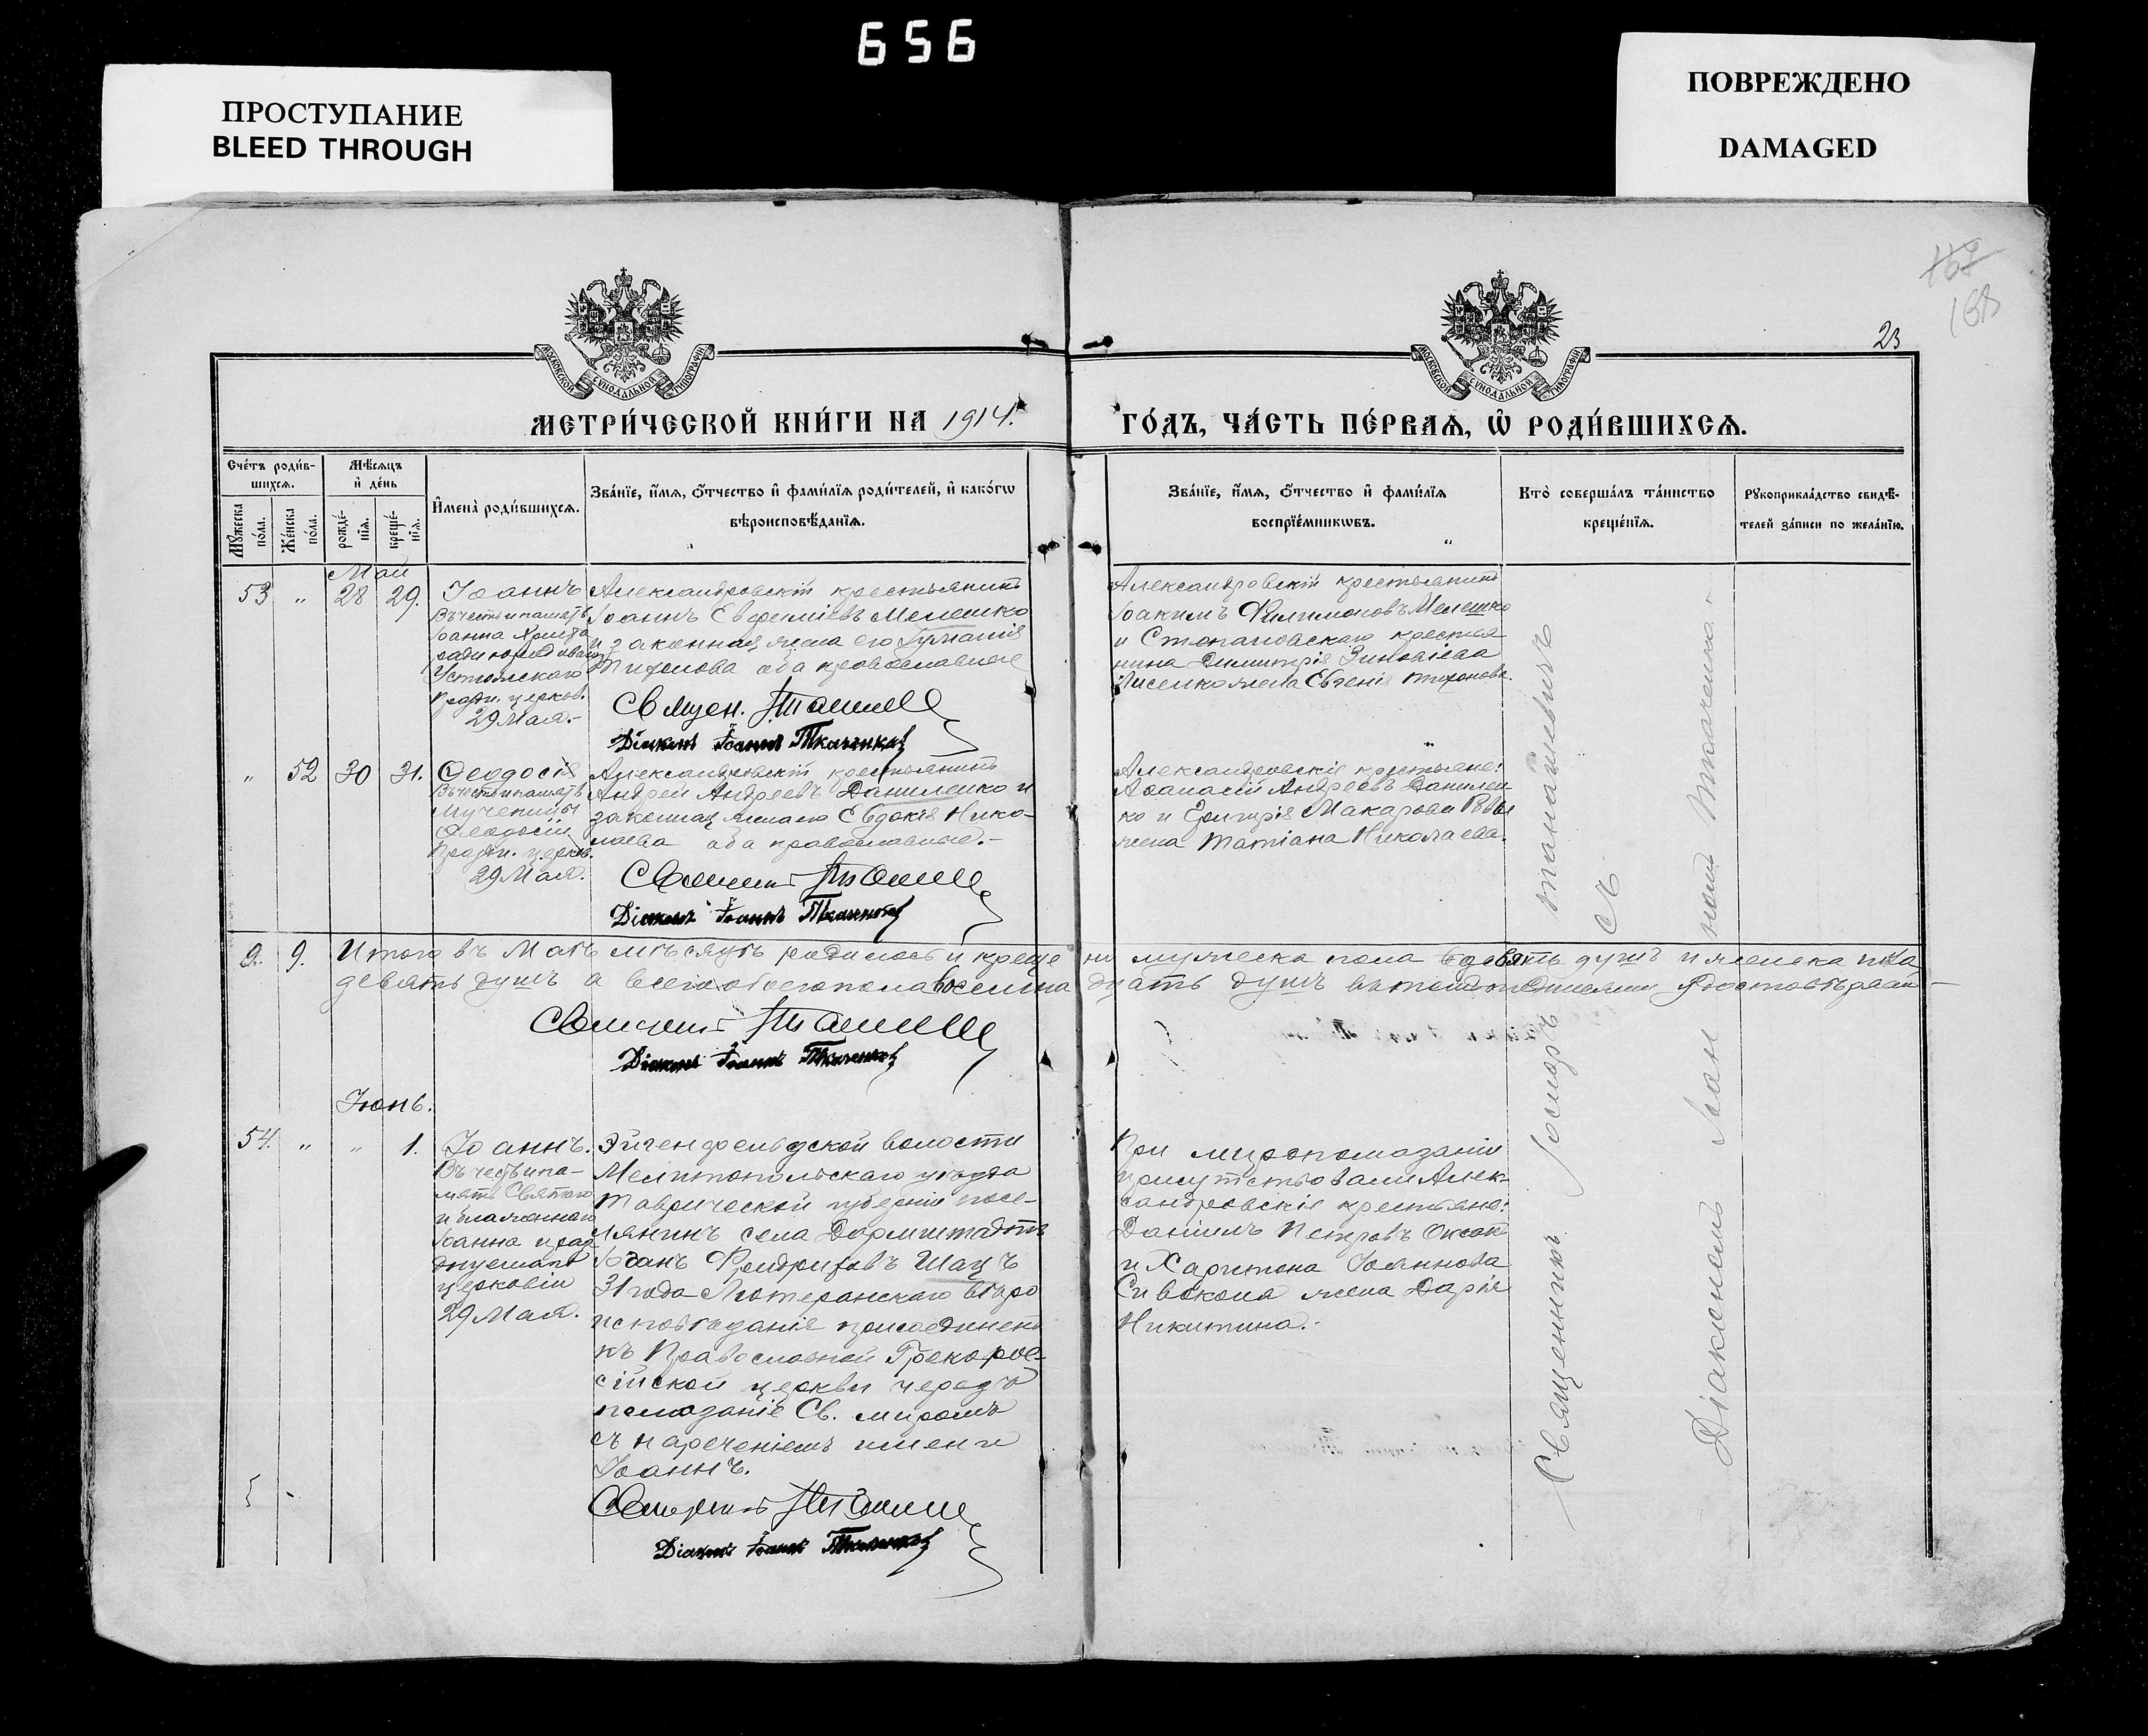 656
ПРОСТУПАНИЕ
BLEED THROUGH
ПОВРЕЖДЕНО
DAMAGED
168
23
МОСКОВСКОЙ СУНОДАЛЬНОЙ ТИПОГРАФІИ
МОСКОВСКОЙ СУНОДАЛЬНОЙ ТИПОГРАФІИ
МЕТРИ́ЧЕСКОЙ КНИ́ГИ НА 1914.
ГО́ДЪ, ЧА́СТЬ ПЕ́РВАѦ, Ѡ҆ РОДИ́ВШИХСѦ.
Сче́тъ роди́в-
шихсѧ.
Мꙋ́жеска по́ла.
Же́нска по́ла.
Мѣ́сѧцъ
и҆ де́нь
рожде́-
нїѧ.
креще́-
нїѧ.
И҆мена̀ роди́вшихсѧ.
Зва́нїе, и҆́мѧ, ѻ҆́тчество и҆ фами́лїѧ роди́телей, и҆ како́гѡ
вѣроисповѣ́данїѧ.
Зва́нїе, и҆́мѧ, ѻ҆́тчество и҆ фами́лїѧ
воспрїе́мникѡвъ.
Кто̀ соверша́лъ та́инство
креще́нїѧ.
Рꙋкоприкла́дство свидѣ́-
телей за́писи по жела́нїю.
Май
53 " 28 29.
Іоаннъ
Въ честь и память
Іоанна Христа
ради юродиваго
Устюжскаго
Праздн. церков.
29 Мая.-
Александровскій крестьянинъ
Іоаннъ Евфиміевъ Мелешко
и законная жена его
Тихонова оба православные
Священ.
Діаконъ Іоаннъ Ткаченко
Александровскій крестьянинъ
Іоакимъ Филимоновъ Мелешко
и Степановскаго крестья
нина Димитрія Зиновіева
Лисенко жена Евгенія Тихонова.
" 52 30 31.
Феодосія
Въ честь и память
мученицы
Феодосіи
Праздн. церков.
29 Мая.
Александровскій крестьянинъ
Андрей Андреевъ Даниленко и
законная жена его Евдокія Нико-
лаева оба православные.-
Священникъ
Діаконъ Іоаннъ Ткаченко
Александровскіе крестьяне:
Аѳанасій Андреевъ Данилен
ко и Григорія Макарова
жена Татіана Николаева.
9. 9. Итого въ Маѣ мѣсяцѣ родилось и креще но мужеска пола девять душъ и женска пола
девять душъ а всего обоего пола восемна дцать душъ
Священникъ
Діаконъ Іоаннъ Ткаченко
Іюнь.
54. " " 1.
Іоаннъ.
Въ честь и па-
мять Святаго
и блаженнаго
Іоанна
церковію
29 Мая.
Эйгенфельдской волости
Мелитопольскаго уѣзда
Таврической губерніи посе-
лянинъ села Дармштадтъ
Іоганъ Фридриховъ Шацъ
31 года Лютеранскаго вѣро
исповѣданія присоединенъ
къ Православной Грекорос-
сійской церкви чрезъ
помазаніе Св. миромъ
съ нареченіемъ имени
Іоаннъ.
Священникъ
Діаконъ Іоаннъ Ткаченко
При миропомазаніи
присутствовали Алек-
сандровскіе крестьяне:
Даніилъ Петровъ
и Харитона Іоаннова
Сивокона жена Дарія
Никитина.-
Священникъ
съ
Діакономъ Іоанномъ Ткаченко.-